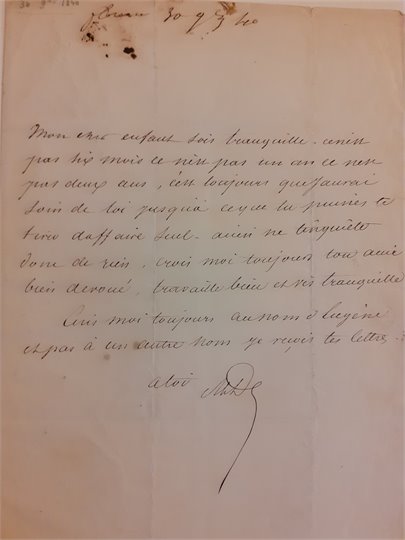 30 9bre 1840
Florence 30 9bre 40
Mon cher enfant sois tranquille. ce n'est
pas six mois ce n'est pas un an ce n'est
pas deux ans, c'est toujours que j'aurai
soin de toi jusqu'à ce que tu puisses te
tirer d'affaire seul. ainsi ne t'inquiète
donc de rien, crois moi toujours ton amie
bien devoué, travaille bien et vis tranquille
Ecris moi toujours au nom d'Eugène
et pas à un autre nom je reçois tes lettres.
a toi